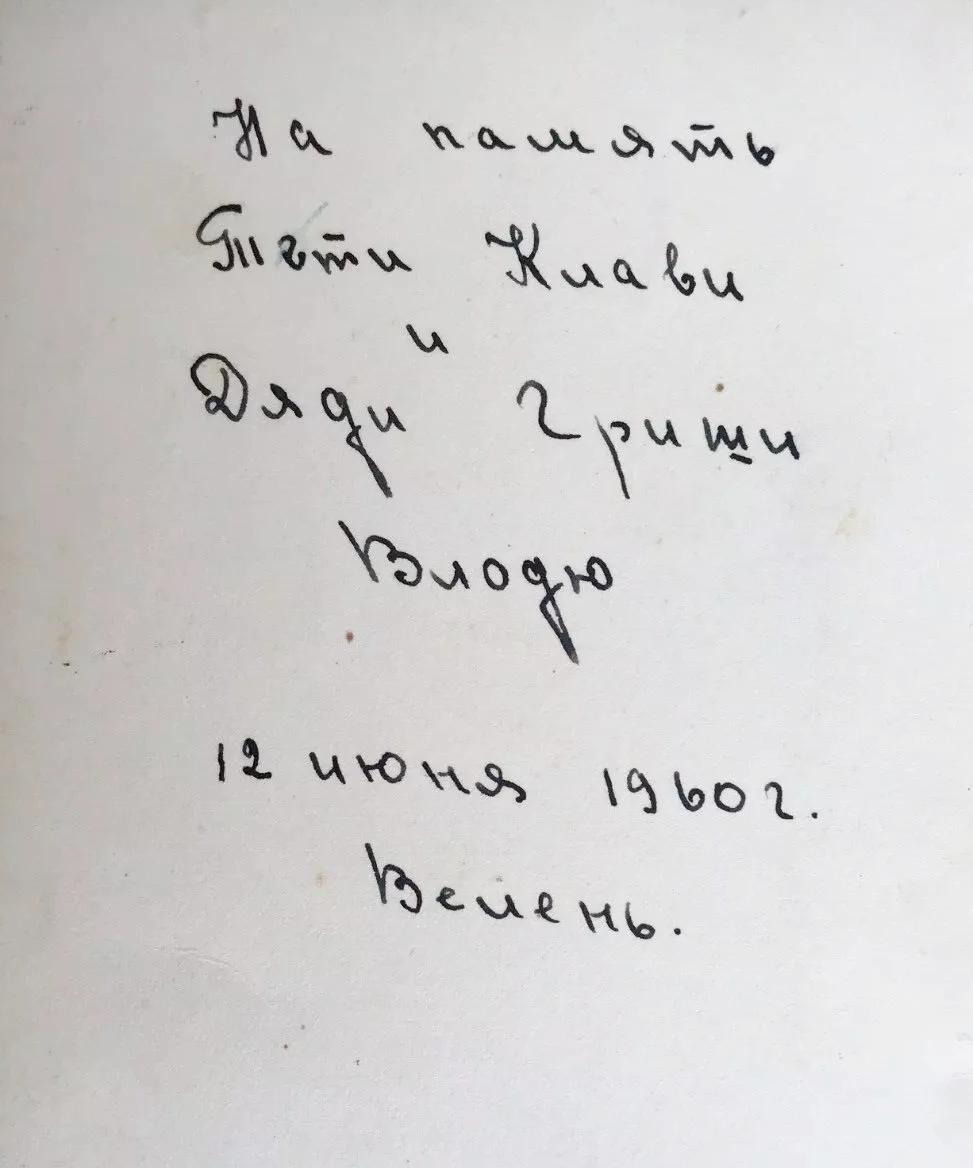 На память
Тёти Клави
и
Дяди Гриши
Влодю
12 июня 1960 г.
Велень.